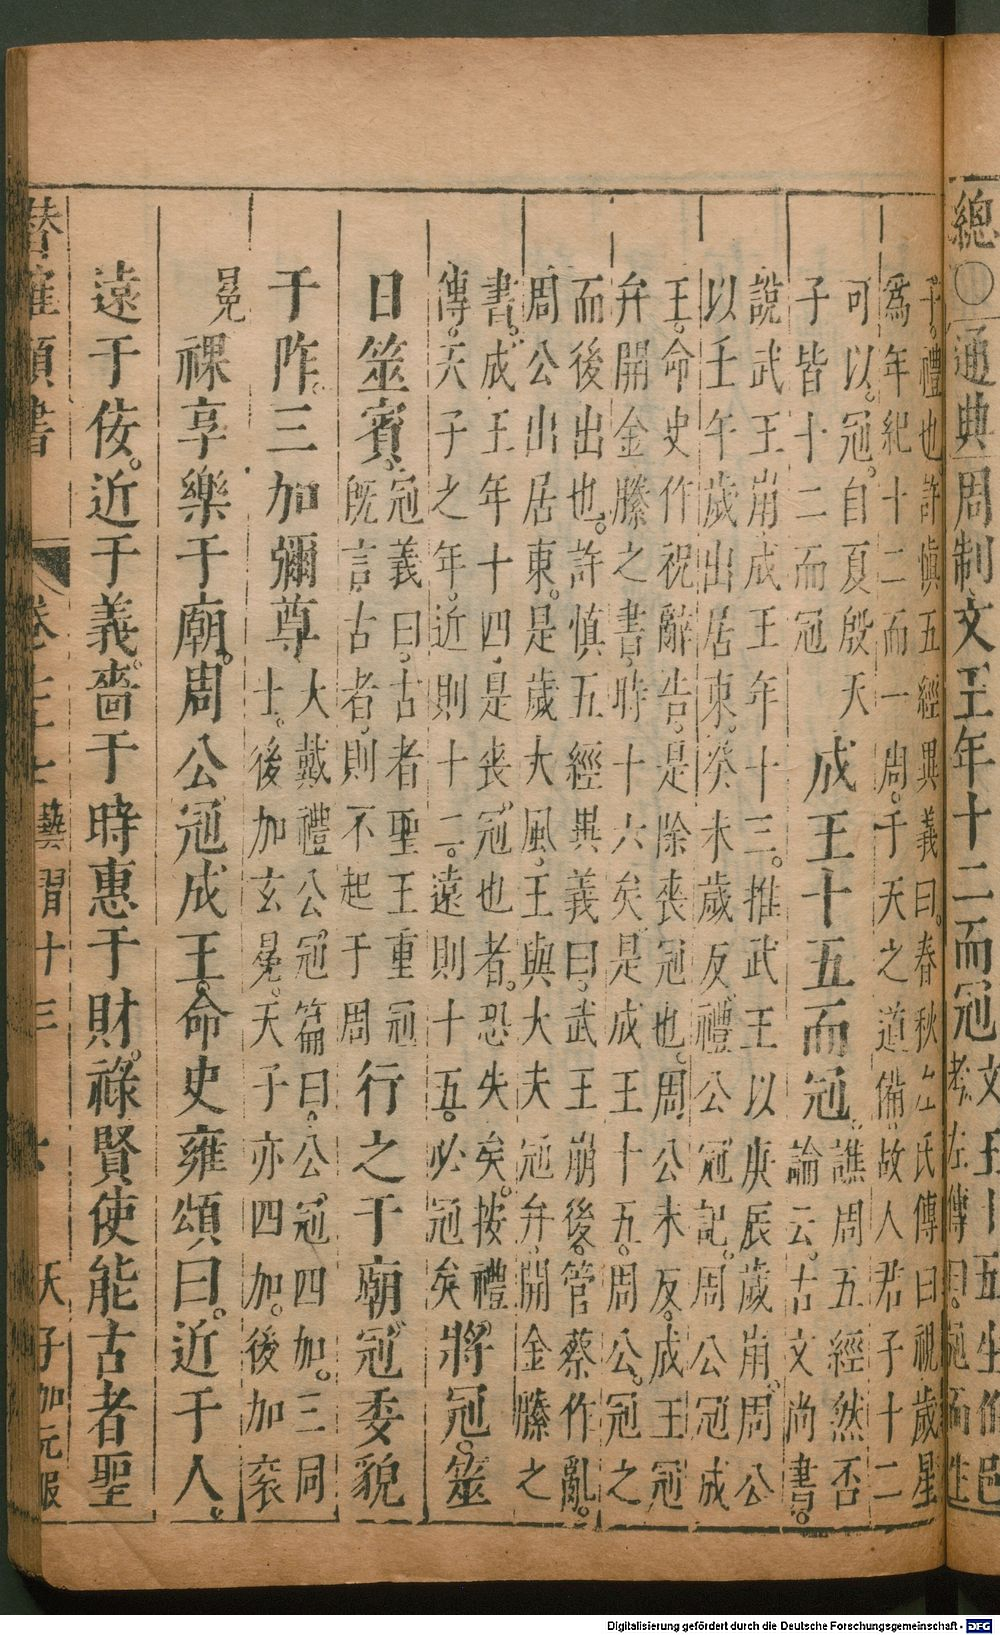 總○通典周制文王年十二而冠
子。禮也許慎五經異義曰。春秋左氏傳曰視歲星
爲年紀十二而一周。于天之道備。故人君子十二
可以。冠。自夏殷天
子皆十二而冠
成王十五而冠。
譙周五經然否
論云。古文尚書。
說武王崩成王年十三。推武王以庚辰歲崩。周公
以壬午歲出居東。癸未歲反。禮公冠記。周公冠成
王。命史作祝辭告。是除喪冠也。周公未反。成王冠
弁開金縢之書。時十六矣。是成王十五。周公。冠之
而後出也。許慎五經異義曰。武王崩後。管蔡作亂。
周公出居東。是歲大風。王與大夫冠弁。開金縢之
書。成王年十四。是喪冠也者。恐失矣。按禮
傳。天子之年。近則十二。遠則十五。必冠矣
將冠。筮
日筮賓。
冠義曰。古者聖王重冠
旣言古者。則不起于周
行之于廟冠委貌
于阼。三加彌尊
大戴禮公冠篇曰。公冠四加。三同
士。後加玄冕。天子亦四加。後加衮
冕
祼享樂于廟。周公冠成王。命史雍頌曰。近于人。
遠于佞。近于義。嗇于時惠于財。祿賢使能古者聖